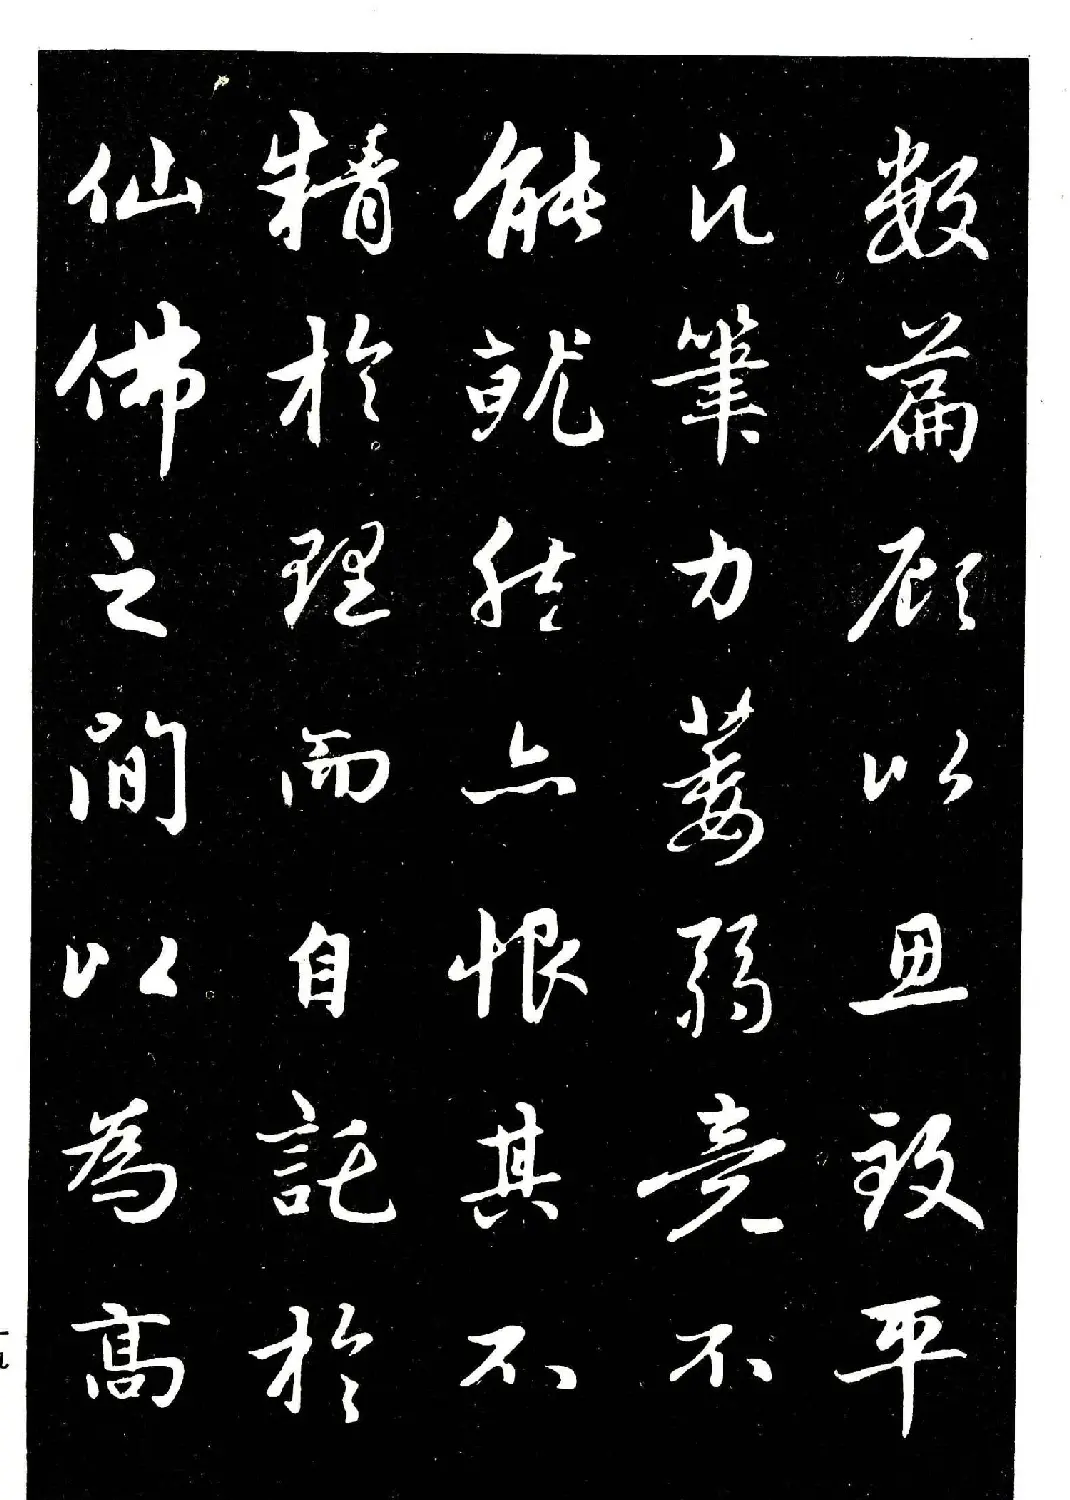 数篇顧以思致平
凡筆力萎弱竟不
能就然亦恨其不
精於理而自託於
仙佛之間以為高